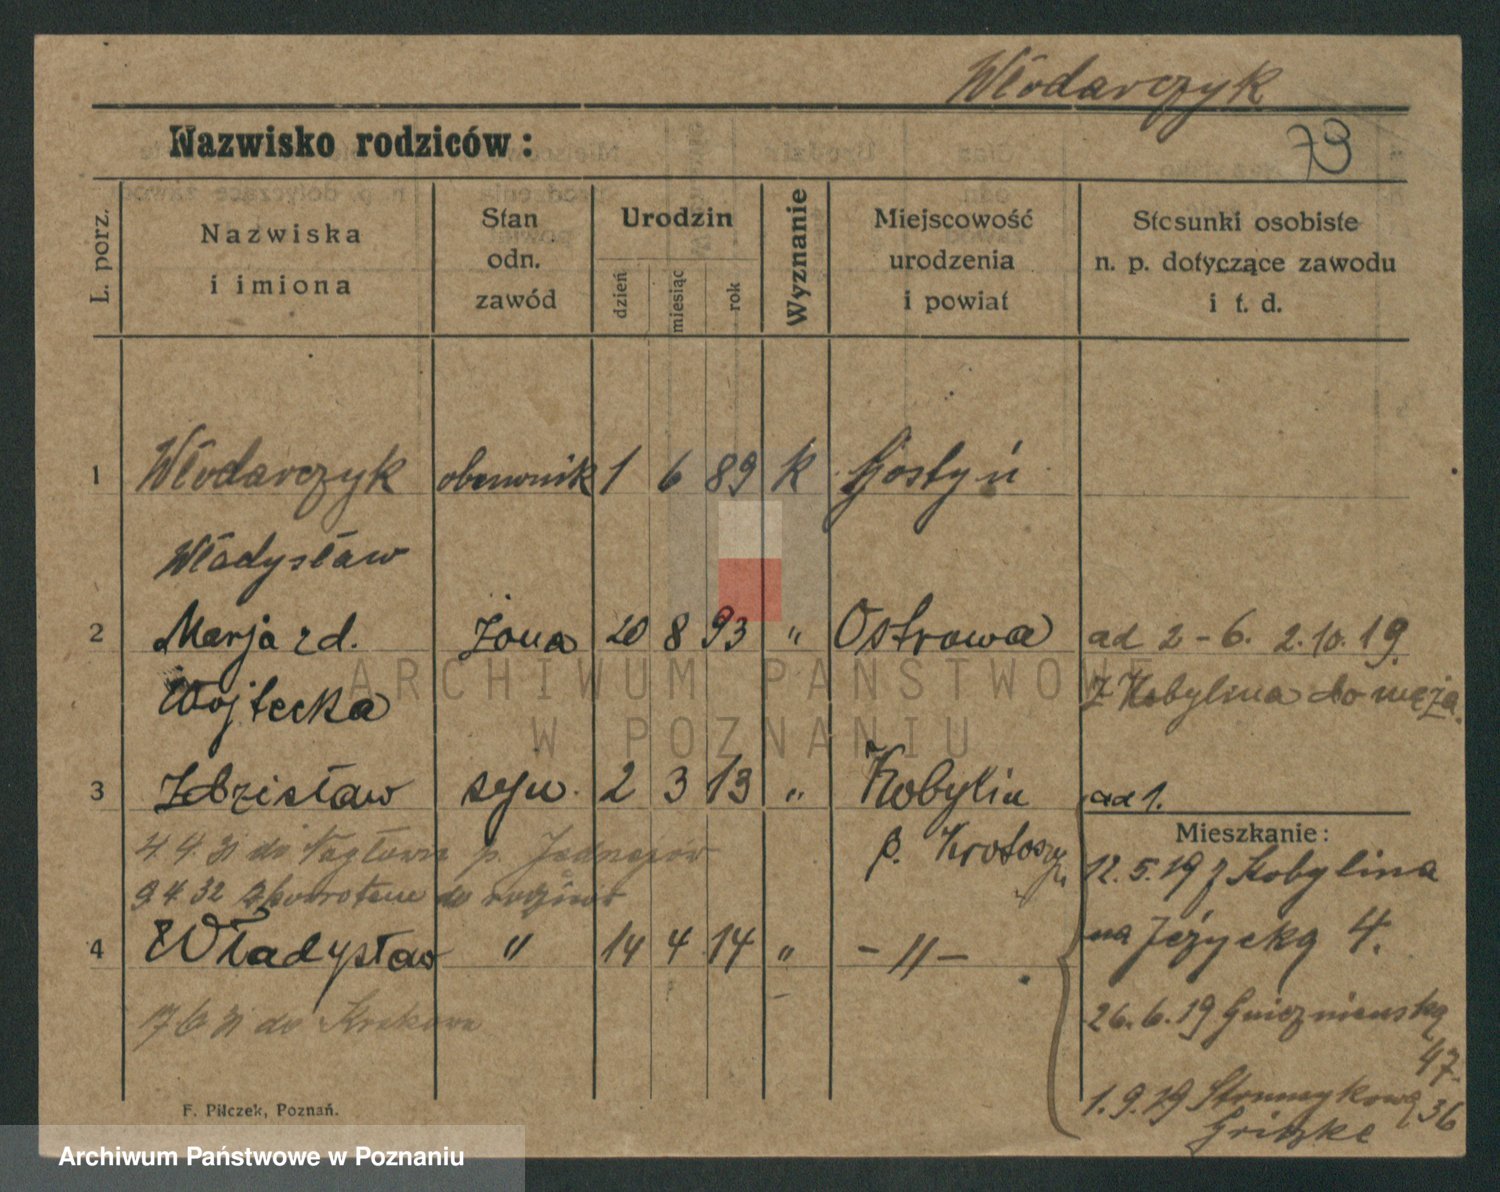 Włodarczyk
Nazwisko rodziców:
73
L. porz.
Nazwiska
i imiona
Stan
odn.
zawód
Urodzin
dzień
miesiąc
rok
Wyznanie
Miejscowość
urodzenia
i powiat
Stosunki osobiste
n. p. dotyczące zawodu
i t. d.
1 Włodarczyk 1 6 89 k Gostyń
Władysław
2 Marja zd. żona 20 8 93 " Ostrowa ad 2-6. 2.10.19.
Wojtecka z Kobylina do męża.
3 Zdzisław syn. 2 3 13 " Kobylin ad 1.
Mieszkanie:
4.4.31 do p. Jędrzejów p. Krotosz. 12.5.19 z Kobylina
9.4.32 do
4 Władysław " 14 4 14 " -"- na Jeżycką 4.
17.6.31 do Krakowa 26.6.19 Gnieźnieńską
47
1.9.29 Strumykową 36
F. Pilczek, Poznań.
ARCHIWUM PAŃSTWOWE
W POZNANIU
Archiwum Państwowe w Poznaniu